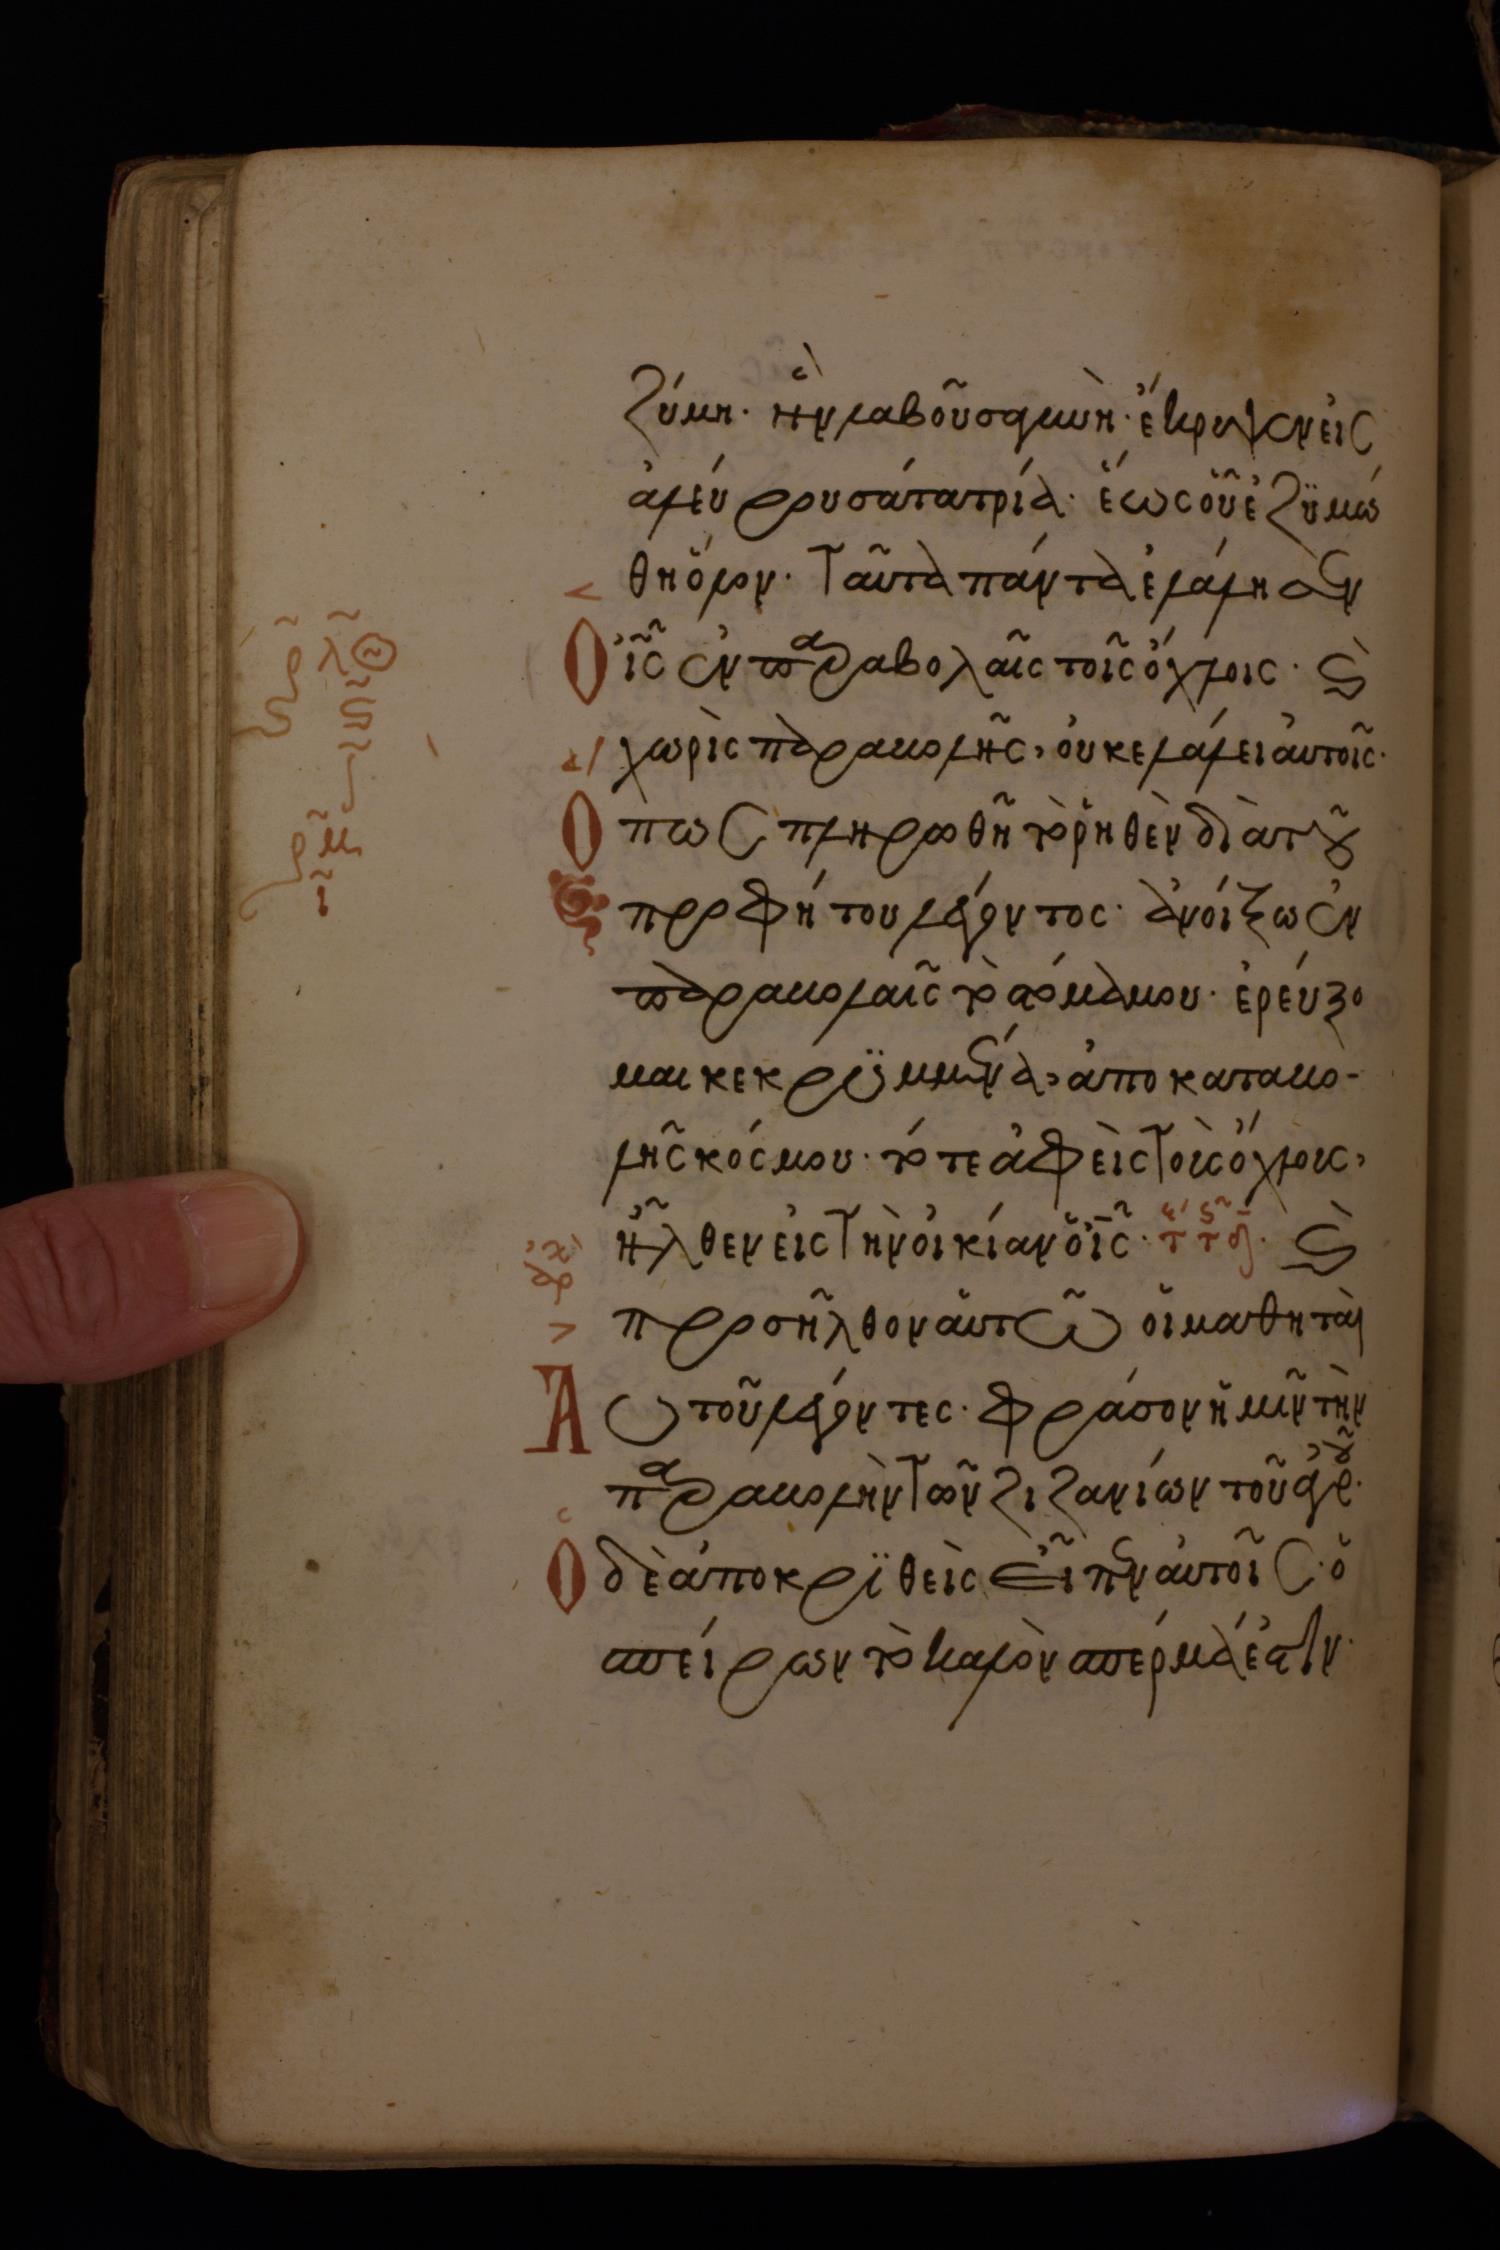 ζύμη· ἣν λαβοῦσα γυνὴ· ἔκρυψεν εἰς
ἀλεύρου σάτα τρία· ἕως οὗ ἐζϋμώ
θη ὅλον· Ταῦτα πάντα ἐλάλησεν
Ὁ ἰς̃ ἐν παραβολαῖς τοῖς ὄχλοις· ϗ
χωρὶς παραβολῆς, οὐκ ἐλάλει ἀυτοῖς·
Ὅπως πληρωθῆ τὸ ῥηθὲν διὰ τοῦ
προφήτου λέγοντος· ἀνοίξω ἐν
παραβολαῖς τὸ στόμα μου· ἐρεύξο
μαι κεκρϋμμένα, ἀπο καταβο-
λῆς κόσμου· τότε ἀφεὶς τοὺς ὄχλους,
ἦλθεν εἰς τὴν οἰκίαν ὁ ἰς̃· ϗ
προσῆλθον ἀυτῶ οἱ μαθηταὶ
Αυτοῦ λέγοντες· φράσον ἡμῖν τὴν
παραβολὴν τῶν ζιζανίων τοῦ ἀγροῦ·
Ὁ δὲ ἀποκρϊθεὶς εἶπεν ἀυτοῖς· ὁ
σπείρων τὸ καλὸν σπέρμα ἐστὶν·